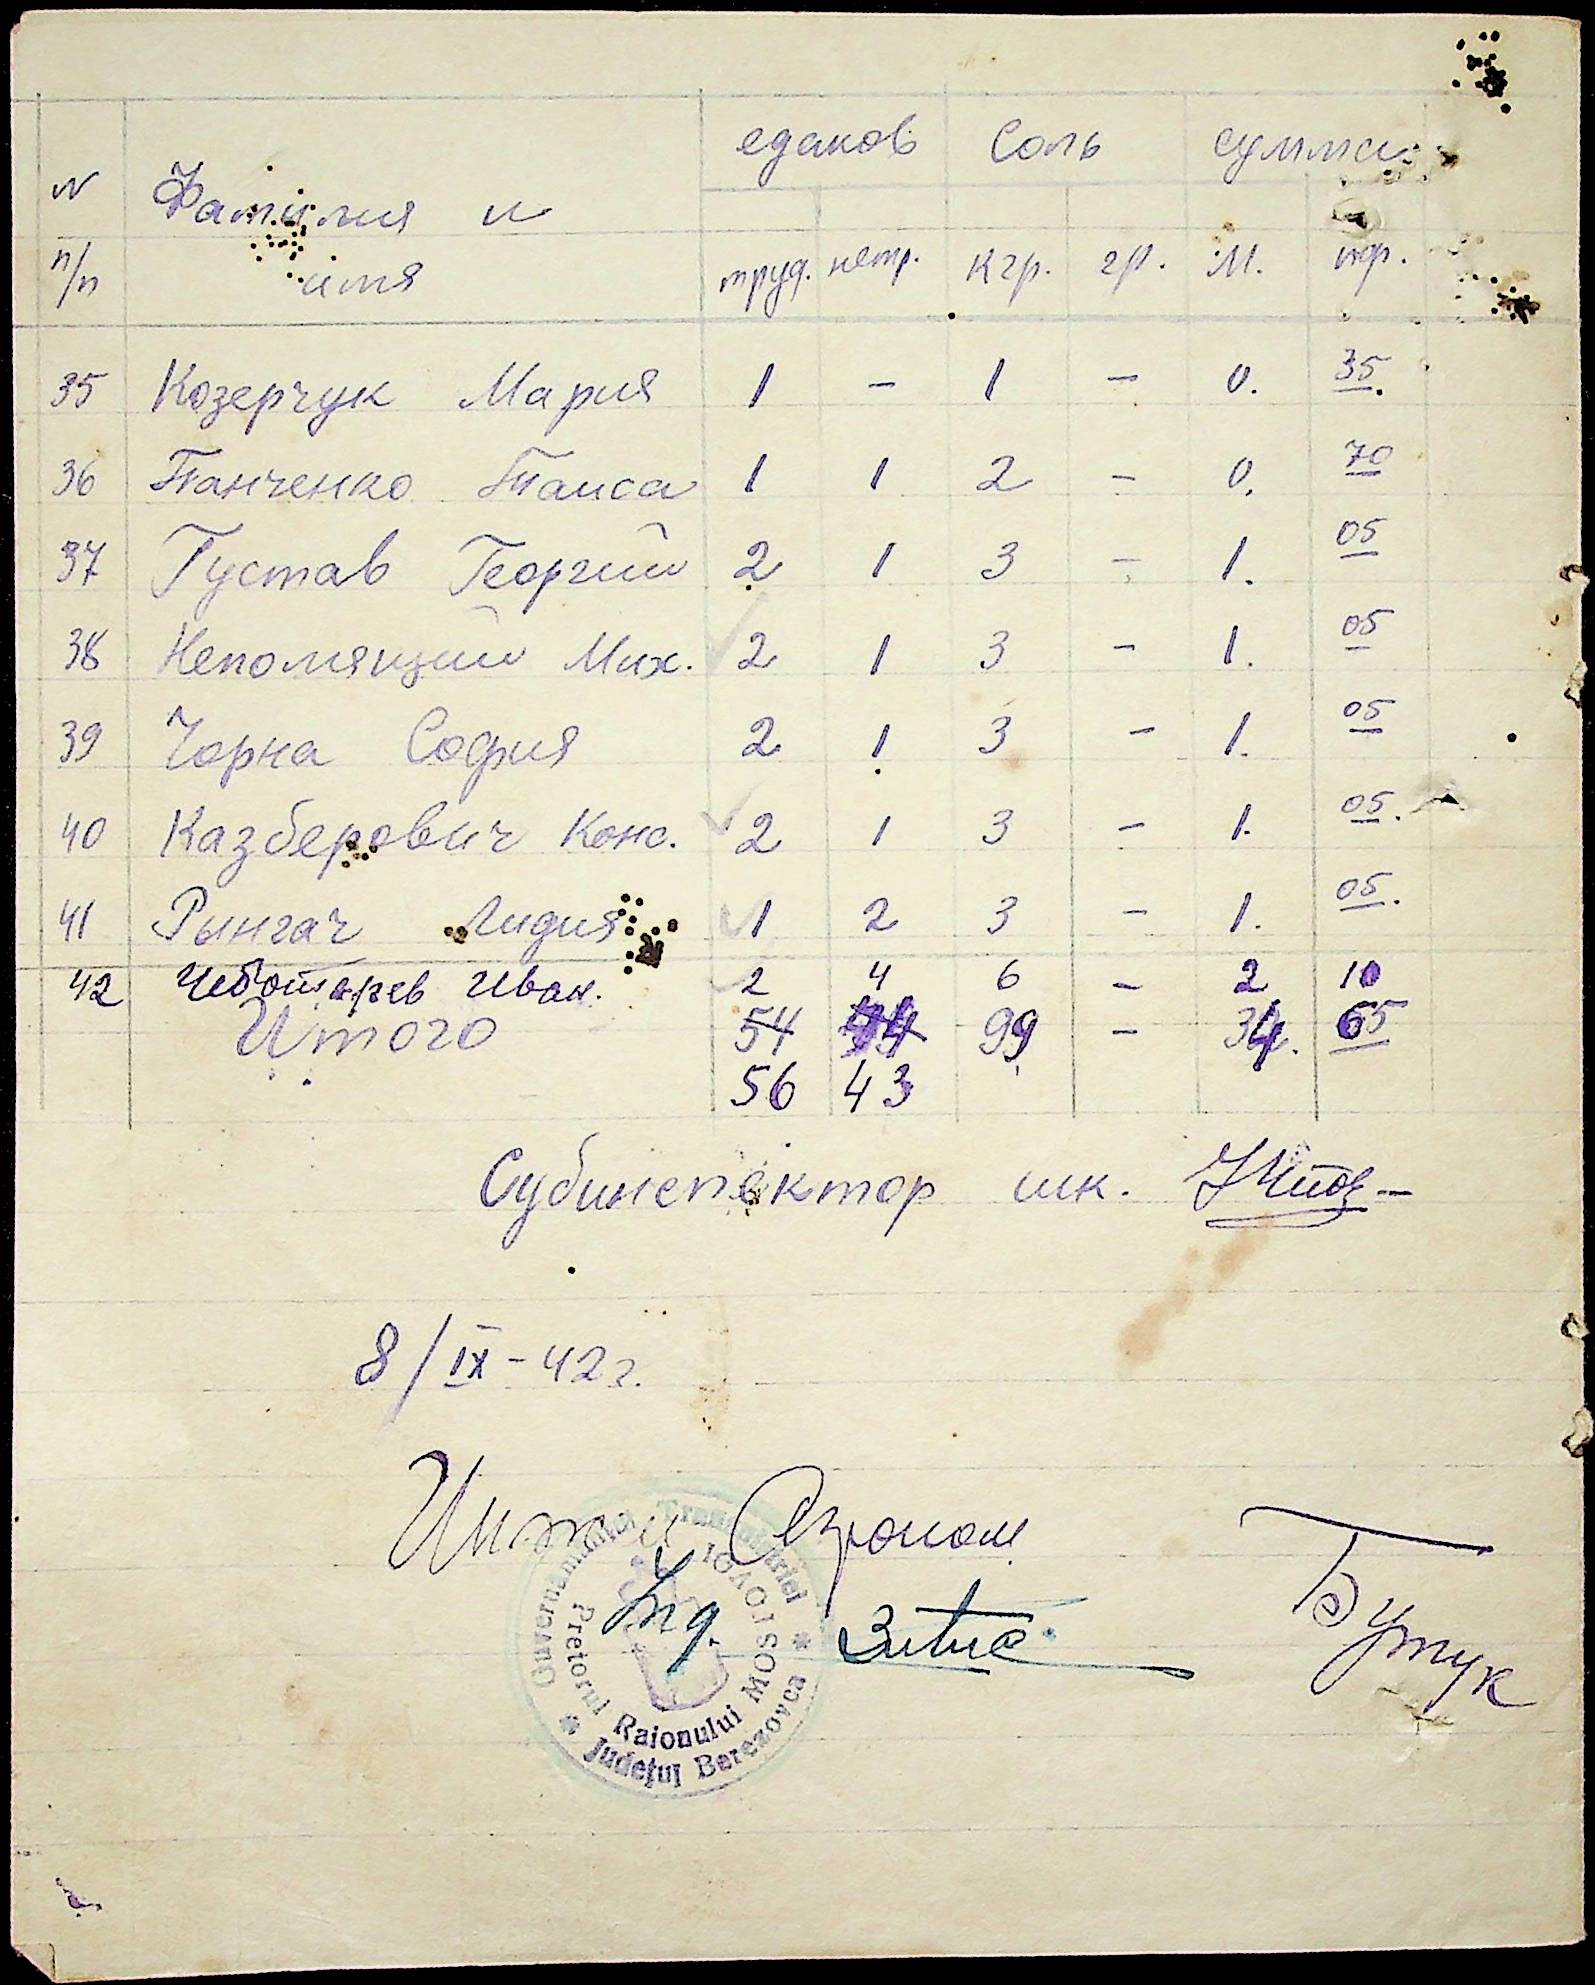 едаков Соль сумма
N Фамилия и
п/п имя труд. нетр. Кгр. гр. М. пф.
35 Козерчук Мария 1 - 1 - 0. 35.
36 Панченко Таиса 1 1 2 - 0. 70
37 Густав Георгий 2 1 3 - 1. 05
38 Непомящий Мих. 2 1 3 - 1. 05
39 Чорна София 2 1 3 - 1. 05
40 Казберович Конс. 2 1 3 - 1. 05.
41 Рынгач Лидия 1 2 3 - 1. 05.
42 Чеботарев Иван. 2 4 6 - 2 10
Итого 54 44 99 - 34. 65
56 43
Субинспектор шк.
8/IX-42 г.
Агроном
Бутук
Ing.
Guvernamantul Transnistriei
Pretorul Raionului MOSTOVOI
Județul Berezovca